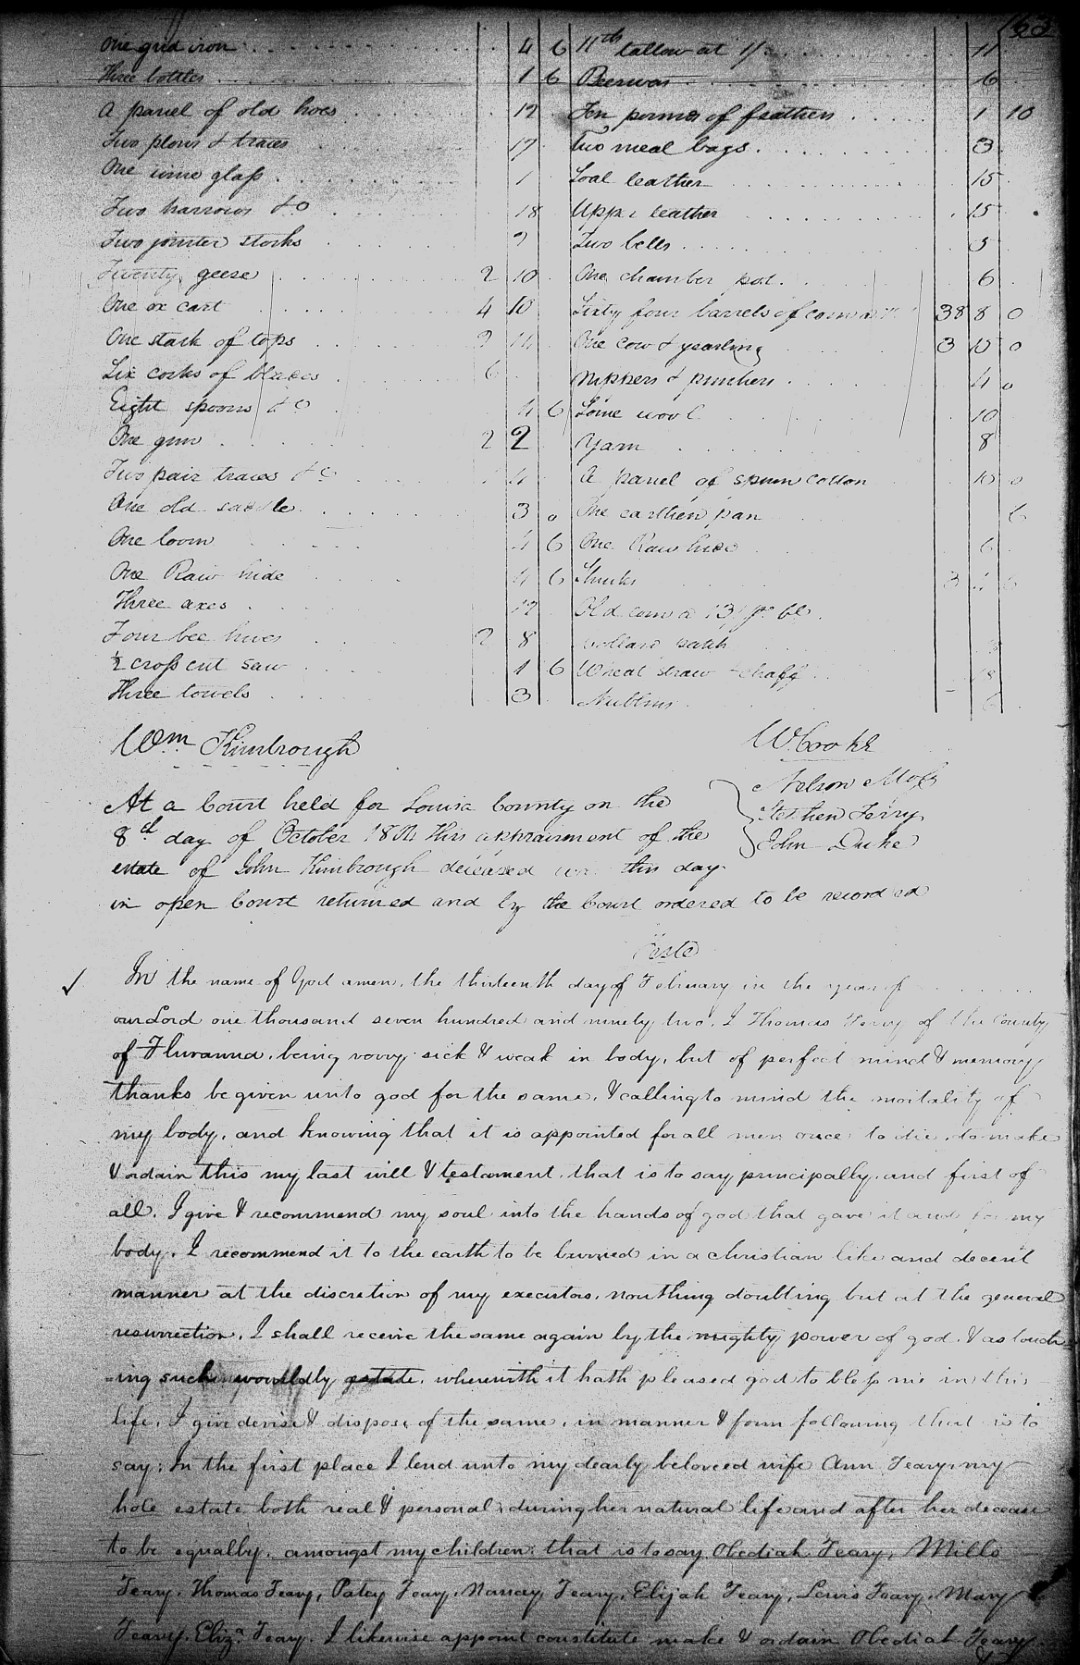 63
One grid iron 4 6
Three bottles 1 6
A parcel of old hoes 12
Two plows & traces 17
One time glass 1
Two harrows &c 18
Two jointer stocks
Twenty geese 2 10
One ox cart 4 10
One stack of tops
Six cocks of blades 6
Eight spoons &c 4 6
One gun 2 2
Two pair traces &c 4
One old saddle 3 0
One loom 4 6
One Raw hide 4 6
Three axes 12
Four bee hives 2 8
½ cross cut saw 1 6
Three towels 3
11 lb tallow at 1/ 11
Beeswax 6
Ten pounds of feathers 1 10
Two meal bags 3
Soal leather 15
Upper leather 15
Two bells 3
One chamber pot 6
Sixty four barrels of corn 38 8 0
One cow & yearling 3 10 0
Nippers & pinchers 4 0
Some wool 10
Yarn 8
A parcel of spun cotton 10 0
One earthen pan 6
One Raw hide 6
Shucks 3
Old corn a 13/ pr bl
patch
Wheat straw & chaff
Nubbins
Wm Kimbrough
W. Cooke
Nelson Moss
Stephen Terry
John Duke
At a Court held for Louisa County on the
8th day of October This appraisment of the
estate of John Kimbrough deceased was this day
in open Court returned and by the Court ordered to be recorded
Teste
In the name of God amen, the thirteenth day of February in the year of
our Lord one thousand seven hundred and ninety two. I Thomas Terry of the County
of Fluvanna, being vovvy sick & weak in body, but of perfect mind & memory
thanks be given unto god for the same, & calling to mind the mortality of
my body, and knowing that it is appointed for all men once to die, do make
& ordain this my last will & testament that is to say principally and first of
all. I give & recommend my soul into the hands of god that gave it and for my
body. I recommend it to the earth to be burried in a christian like and decent
manner at the discretion of my executors, nouthing doubting but at the general
resurrection, I shall receive the same again by the mighty power of god & as touch=
=ing such wourldly estate, wherewith it hath pleased god to bless me in this
life, I give devise & dispose of the same, in manner & form following that is to
say; In the first place I lend unto my dearly beloveed wife Ann Teary, my
hole estate both real & personal during her natural life and after her decease
to be equally, amongst my children that is to say Obediah Teary, Mills
Teary, Thomas Teary, Patcy Teary, Nancy Teary, Elijah Teary, Lewis Teary, Mary
Teary, Eliza Teary. I likewise appoint constitute make & ordain Obediah Teary